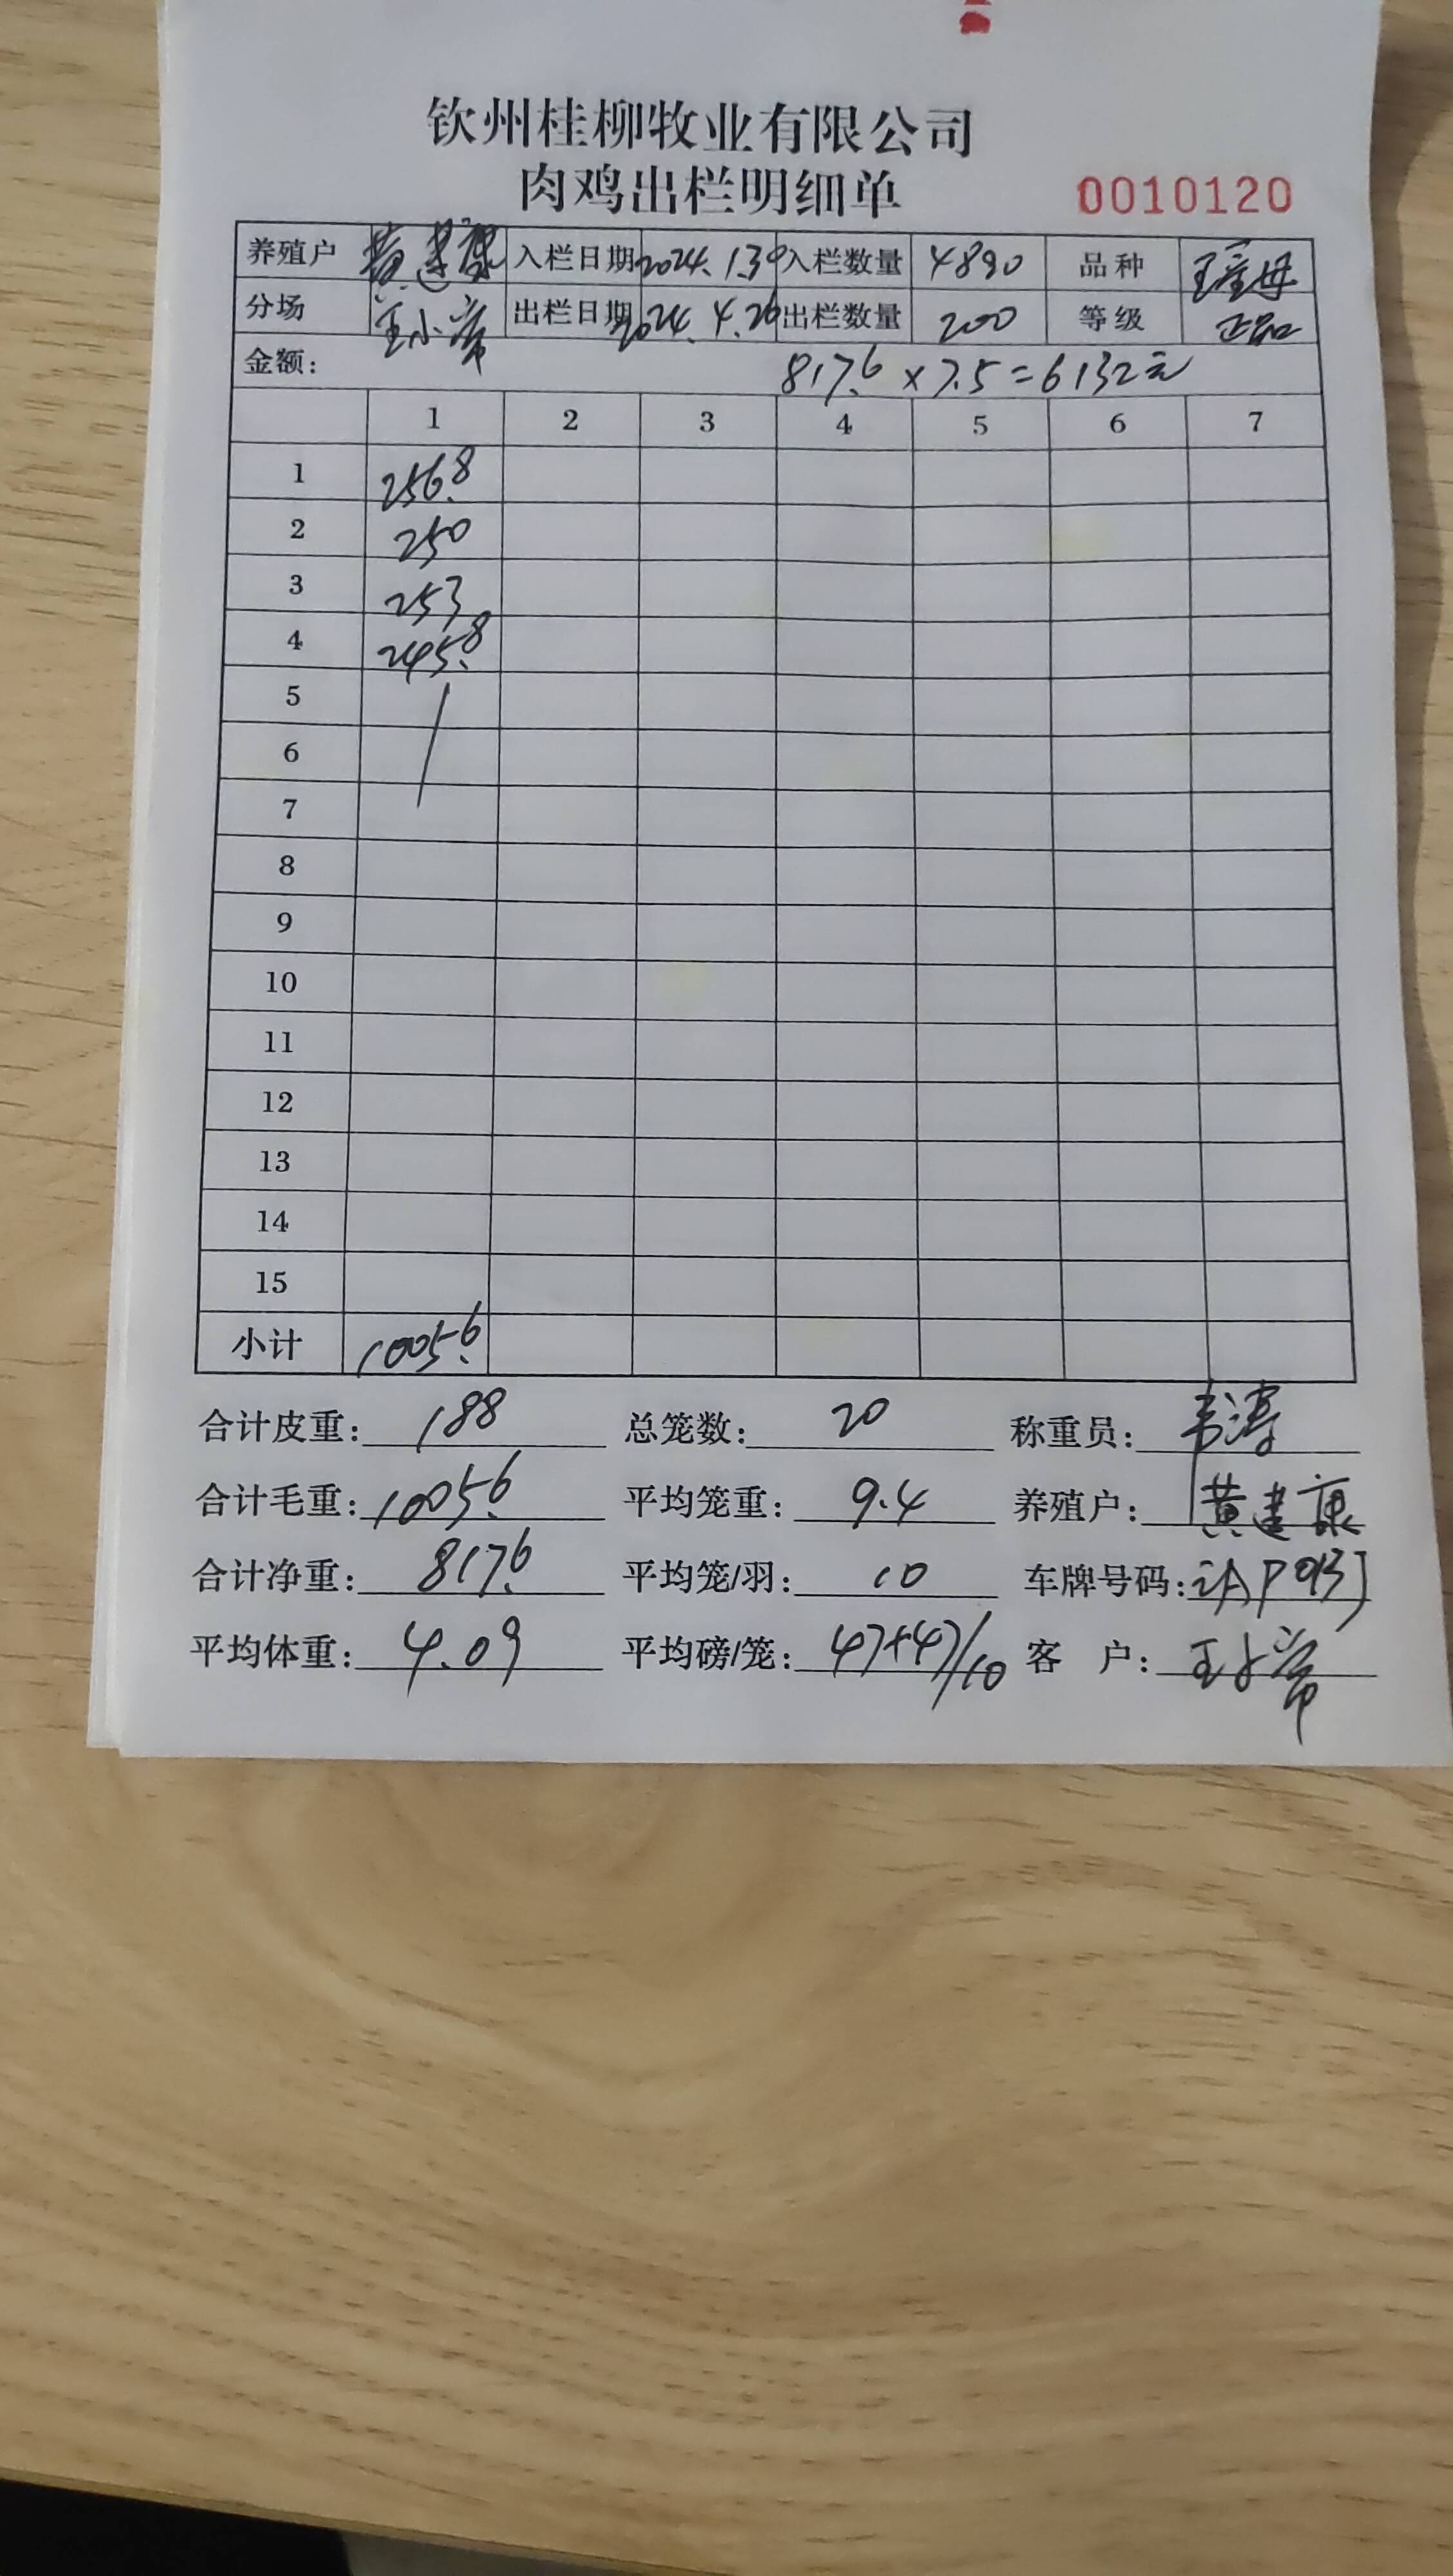 钦州桂柳牧业有限公司
肉鸡出栏明细单
0010120
养殖户 黄建康 入栏日期 2024.1.30 入栏数量 4890 品种
分场 王小常 出栏日期 2024.4.26 出栏数量 200 等级 正品
金额: 817.6×7.5=6132元
1 2 3 4 5 6 7
1 256.8
2 250
3 253
4 245.8
5
6
7
8
9
10
11
12
13
14
15
小计 1005.6
合计皮重: 188 总笼数: 20 称重员: 韦涛
合计毛重: 1005.6 平均笼重: 9.4 养殖户: 黄建康
合计净重: 817.6 平均笼/羽: 10 车牌号码:
平均体重: 4.09 平均磅/笼: 47+47/10 客 户: 王小常